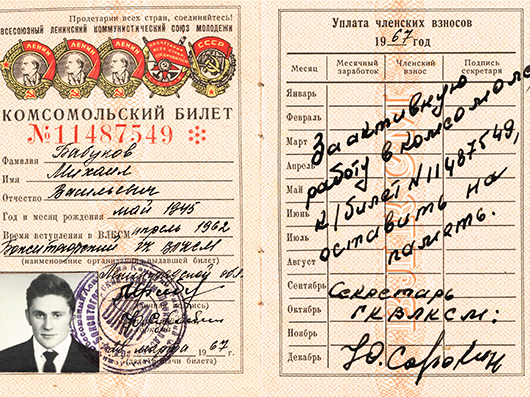 Пролетарии всех стран, соединяйтесь!
ВСЕСОЮЗНЫЙ ЛЕНИНСКИЙ КОММУНИСТИЧЕСКИЙ СОЮЗ МОЛОДЕЖИ
КОМСОМОЛЬСКИЙ БИЛЕТ
№11487549
Фамилия Бабуков
Имя Михаил
Отчество Васильевич
Год и месяц рождения май 1945
Время вступления в ВЛКСМ апрель 1962
ГК ВЛКСМ
(наименование организации, выдавшей билет)
Ленинградской обл.
марта 1967 г.
(дата выдачи билета)
Уплата членских взносов
1967 год
Месяц Месячный заработок Членский взнос Подпись секретаря
Январь
Февраль
Март
Апрель
Май
Июнь
Июль
Август
Сентябрь
Октябрь
Ноябрь
Декабрь
За активную
работу в комсомоле
к/билет N11487549,
оставить на
память.
Секретарь
ГК ВЛКСМ:
Ю. Сорокин